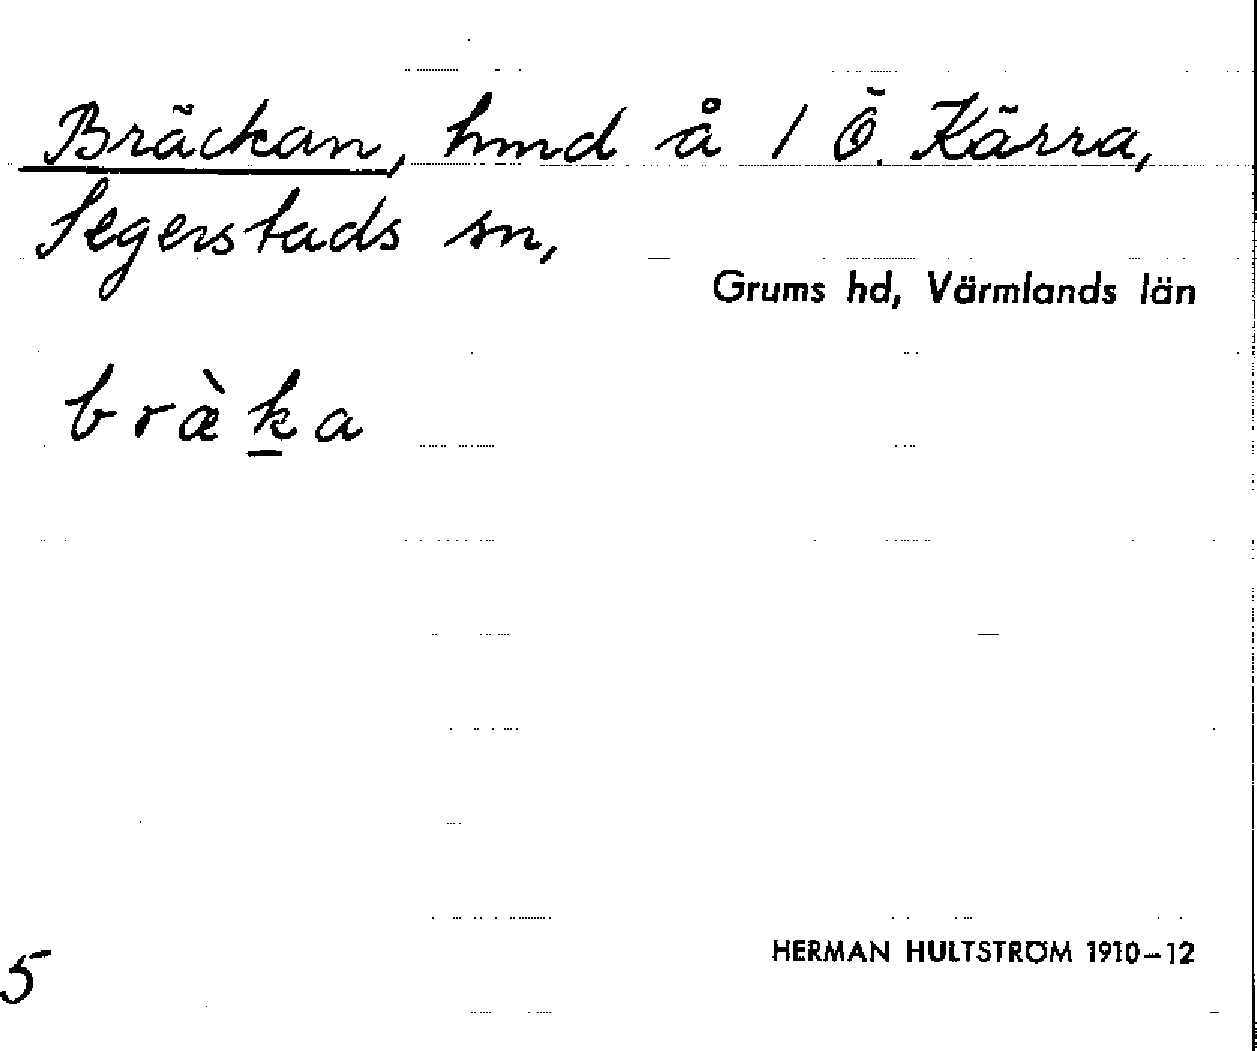 Bräckan, hmd å 1 Ö. Kärra,
Segerstads sn,
Grums hd, Värmlands län
bræ̀k̲a
HERMAN HULTSTRÖM 1910–12
5